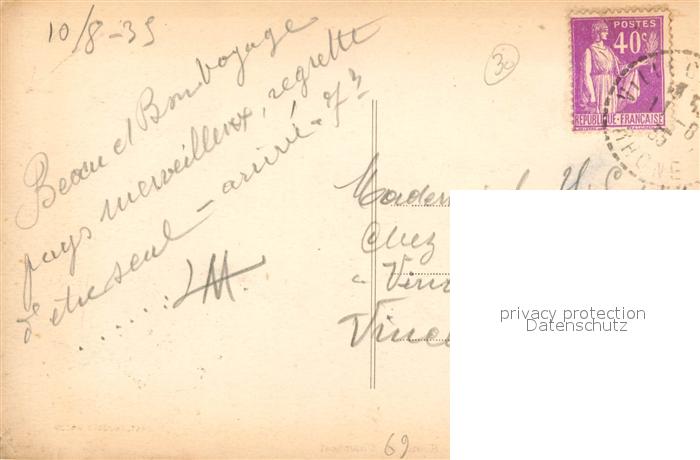 10/8-35
Beau et Bon voyage
pays merveilleux, regrette
d'être seul - arrivé - 7h
......LM.
30
POSTES
40c
REPUBLIQUE-FRANÇAISE
RHONE
Chez
à
69
privacy protection
Datenschutz